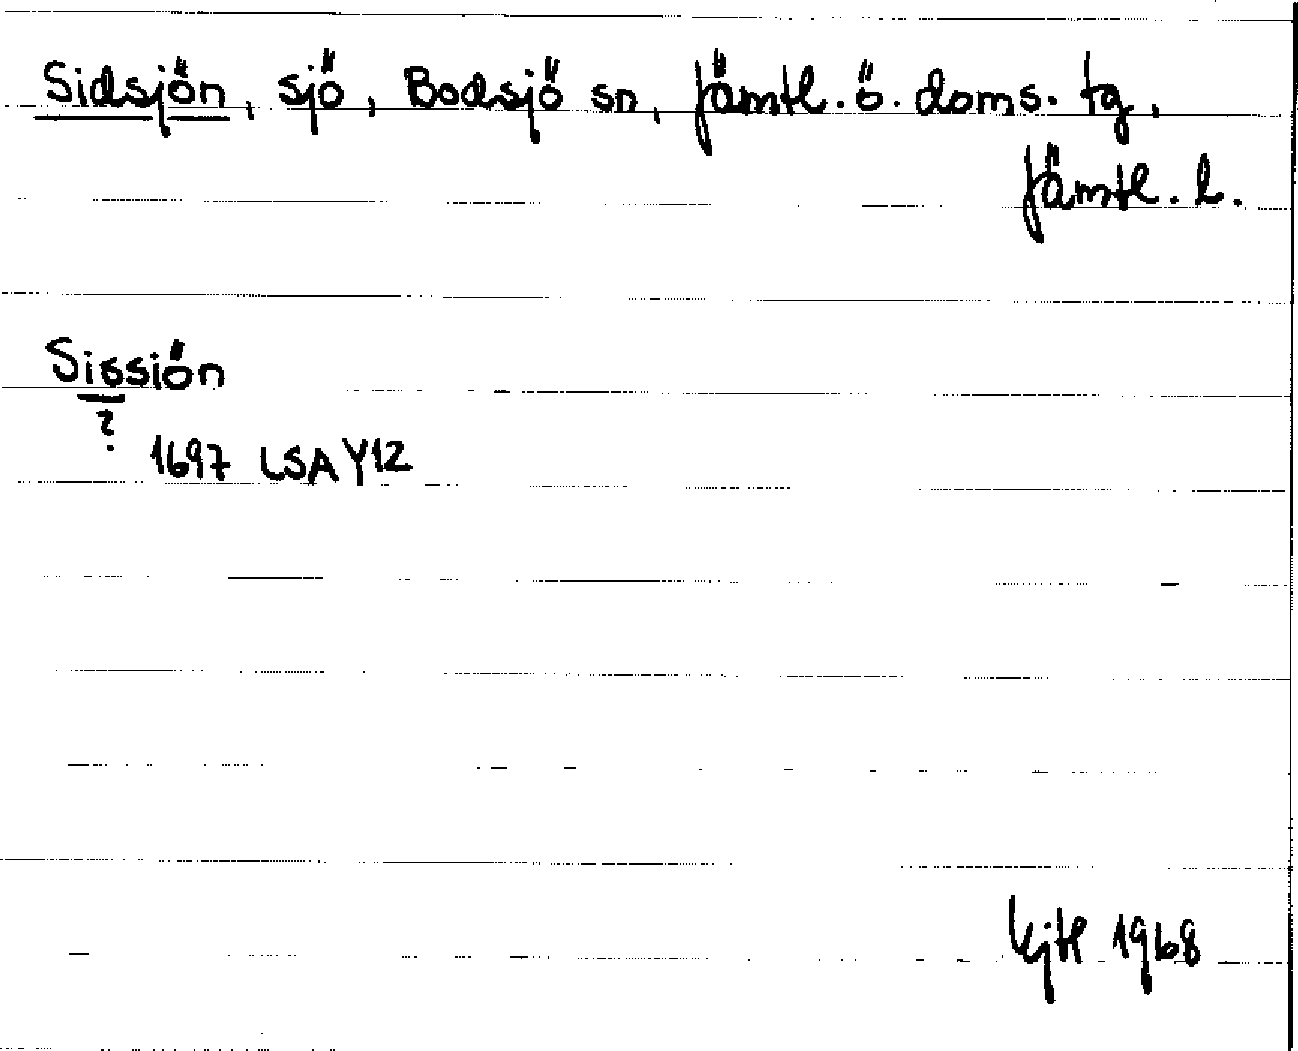 Sidsjön, sjö, Bodsjö sn, Jämtl. ö. doms. tg,
Jämtl. l.
Sissiön
?
1697 LSA Y12
1968